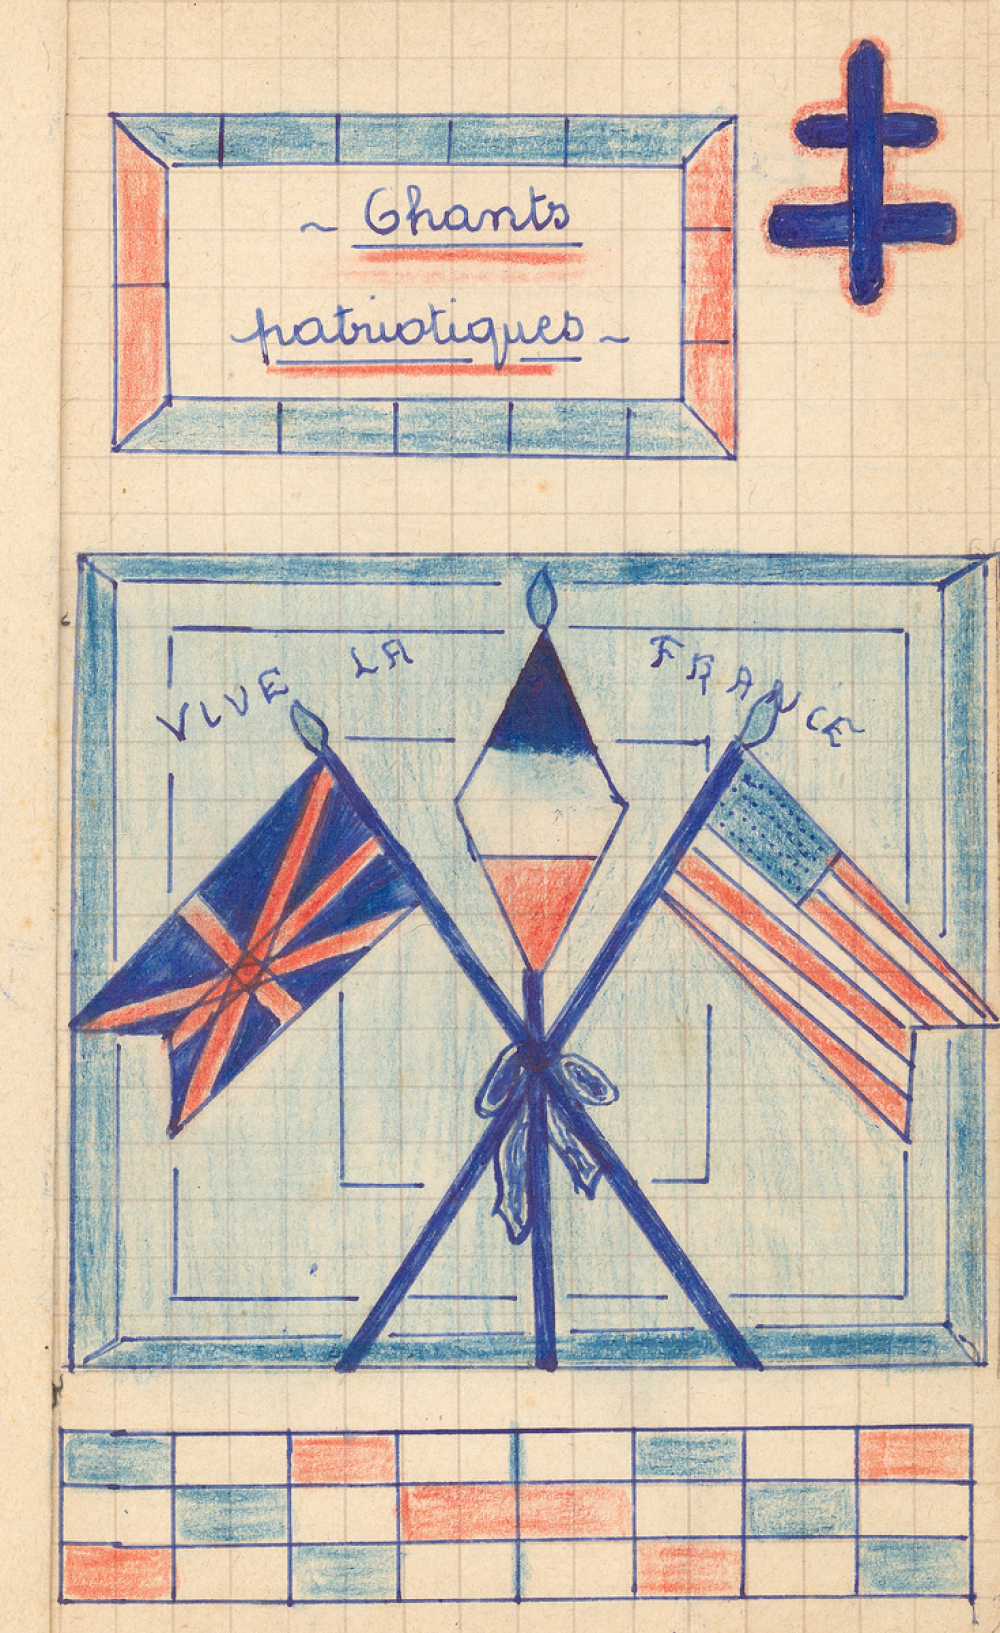 ~ Chants
patriotiques ~
VIVE LA FRANCE